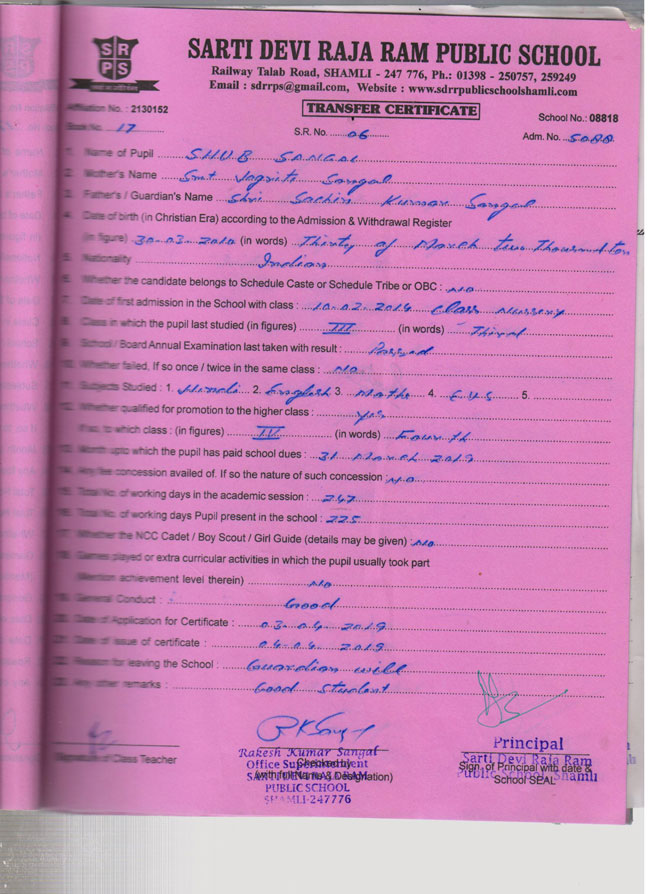 SRPS
SARTI DEVI RAJA RAM PUBLIC SCHOOL
Railway Talab Road, SHAMLI - 247 776, Ph.: 01398 - 250757, 259249
Email : sdrrps@gmail.com, Website : www.sdrrpublicschoolshamli.com
TRANSFER CERTIFICATE
Affiliation No. : 2130152
School No.: 08818
Book No. 17
S.R. No. 06
Adm. No.
1. Name of Pupil SHUB SANGAL
2. Mother's Name Smt Jagriti Sangal
3. Father's / Guardian's Name Shri Sachin Kumar Sangal
4. Date of birth (in Christian Era) according to the Admission & Withdrawal Register
(in figure) 30-03-2010 (in words) Thirty of March two Thousand ten
5. Nationality Indian
6. Whether the candidate belongs to Schedule Caste or Schedule Tribe or OBC : NO
7. Date of first admission in the School with class : 10.02.2014 Class Nursery
8. Class in which the pupil last studied (in figures) III (in words) Third
9. School / Board Annual Examination last taken with result : Passed
10. Whether failed, If so once / twice in the same class : NO
11. Subjects Studied : 1. Hindi 2. English 3. Maths 4. E.V.S 5.
12. Whether qualified for promotion to the higher class : Yes
If so, to which class : (in figures) IV (in words) Fourth
13. Month upto which the pupil has paid school dues : 31 March 2019
14. Any fee concession availed of. If so the nature of such concession : NO
15. Total No. of working days in the academic session : 247
16. Total No. of working days Pupil present in the school : 225
17. Whether the NCC Cadet / Boy Scout / Girl Guide (details may be given) : NO
18. Games played or extra curricular activities in which the pupil usually took part
(Mention achievement level therein) NO
19. General Conduct : Good
20. Date of Application for Certificate : 03.04.2019
21. Date of issue of certificate : 04.04.2019
22. Reason for leaving the School : Guardian will
23. Any other remarks : Good Student
Signature of Class Teacher
Rakesh Kumar Sangal
Office Superintendent
SARTI DEVI RAJA RAM
PUBLIC SCHOOL
SHAMLI-247776
Checked by
(with full Name & Designation)
Principal
Sarti Devi Raja Ram
Public School Shamli
Sign. of Principal with date &
School SEAL